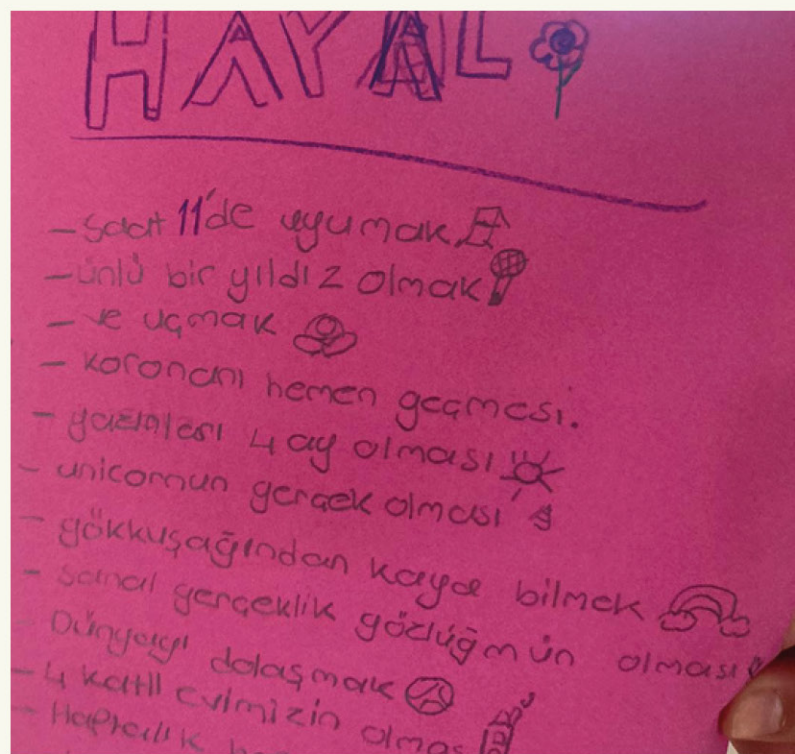 HAYAL
- saat 11'de uyumak
- ünlü bir yıldız olmak
- ve uçmak
- koronanı hemen geçmesi.
- yazınlesı 4 ay olması
- unicornun gerçek olması
- gökkuşağından kaya bilmek
- sanal gerçeklik gözlüğmün olması
- Dünyayı dolaşmak
- 4 katlı evimizin olmas
- Haftalık